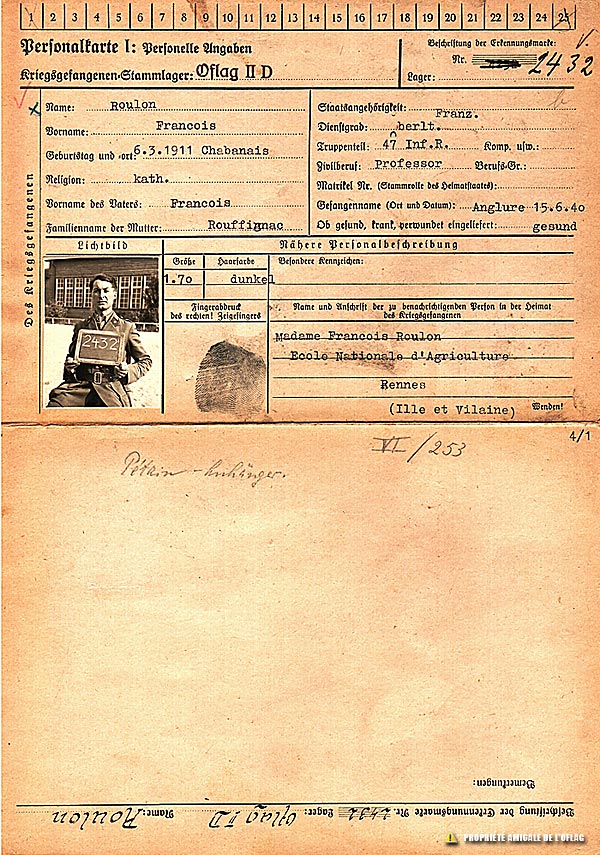 1 2 3 4 5 6 7 8 9 10 11 12 13 14 15 16 17 18 19 20 21 22 23 24 25
Personalkarte I: Personelle Angaben
Kriegsgefangenen-Stammlager: Oflag II D
Beschriftung der Erkennungsmarke:
Nr. 2432
Lager:
Des Kriegsgefangenen
Name: Roulon
Vorname: Francois
Geburtstag und -ort: 6.3.1911 Chabanais
Religion: kath.
Vorname des Vaters: Francois
Familienname der Mutter: Rouffignac
Staatsangehörigkeit: Franz.
Dienstgrad: berlt.
Truppenteil: 47 Inf.R. Komp. usw.:
Zivilberuf: Professor Berufs-Gr.:
Matrikel Nr. (Stammrolle des Heimatstaates):
Gefangenname (Ort und Datum): Anglure 15.6.40
Ob gesund, krank, verwundet eingeliefert: gesund
Lichtbild
Nähere Personalbeschreibung
Größe Haarfarbe
1.70 dunkel
Besondere Kennzeichen:
Fingerabdruck
des rechten! Zeigefingers
Name und Anschrift der zu benachrichtigenden Person in der Heimat
des Kriegsgefangenen
2432
Madame Francois Roulon
Ecole Nationale d'Agriculture
Rennes
(Ille et Vilaine)
Wenden!
4/1
VI/253
Pétain-Anhänger.
Bemerkungen:
Beschriftung der Erkennungsmarke Nr. 2432 Lager: Oflag II D Name: Roulon
PROPRIÉTÉ AMICALE DE L'OFLAG